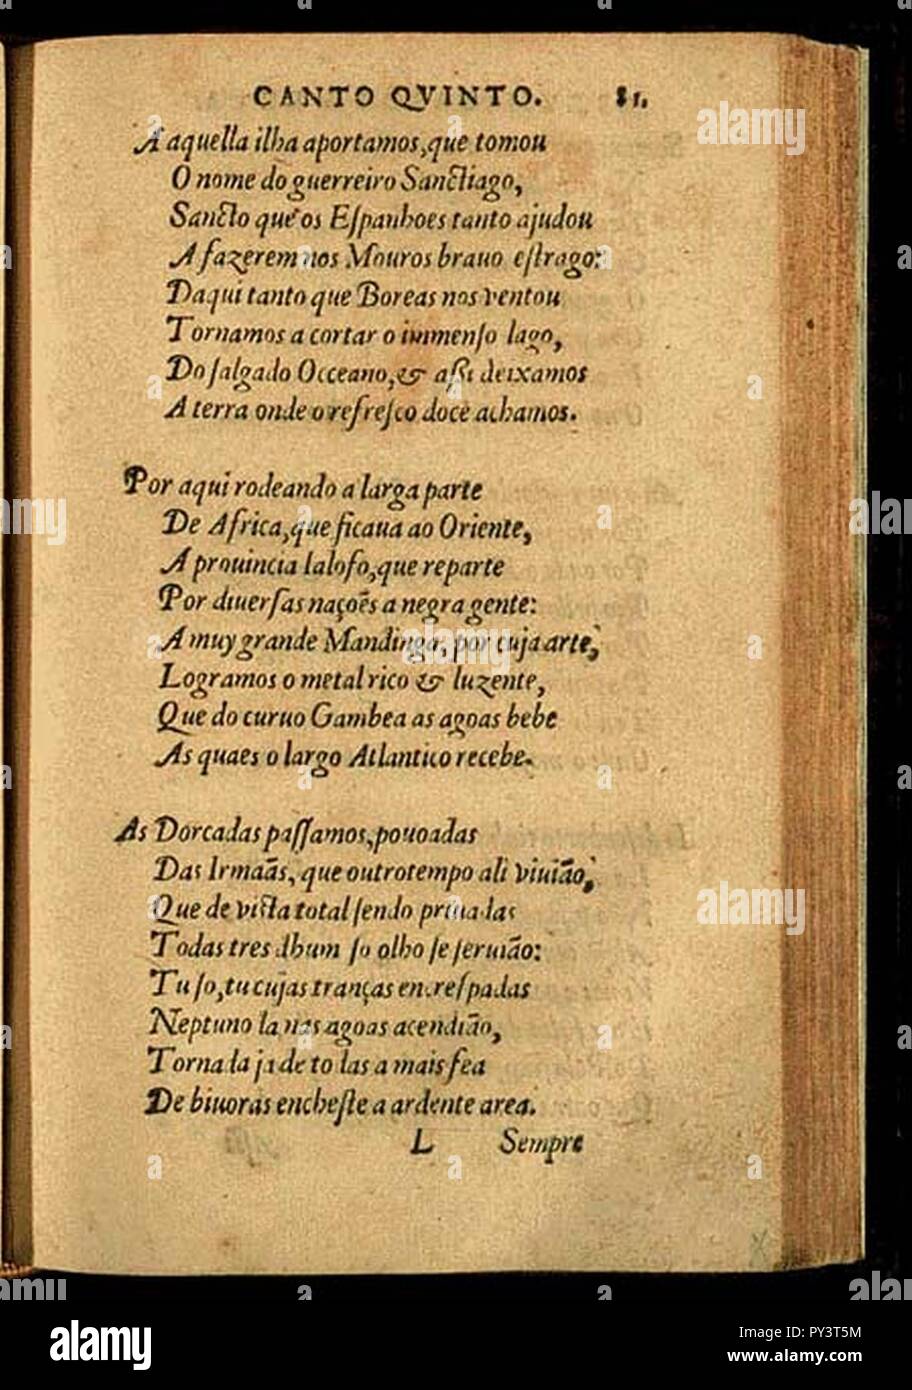 CANTO QVINTO. 81.
A aquella ilha aportamos, que tomou
O nome do guerreiro Sanctiago,
Sancto que os Eſpanhoes tanto ajudou
A fazerem nos Mouros brauo eſtrago:
Daqui tanto que Boreas nos ventou
Tornamos a cortar o immenſo lago,
Do ſalgado Occeano, & aſsi deixamos
A terra onde o refreſco doce achamos.
Por aqui rodeando a larga parte
De Africa, que ficaua ao Oriente,
A prouincia Ialofo, que reparte
Por diuerſas naçoẽs a negra gente:
A muy grande Mandinga, por cuja arte,
Logramos o metal rico & luzente,
Que do curuo Gambea as agoas bebe
As quaes o largo Atlantico recebe.
As Dorcadas paſſamos, pouoadas
Das Irmaãs, que outro tempo ali viuião,
Que de viſta total ſendo priuadas
Todas tres dhum ſo olho ſe ſeruião:
Tu ſo, tu cujas tranças encreſpadas
Neptuno la nas agoas acendião,
Tornada ja de todas a mais fea
De biuoras encheſte a ardente area.
L Sempre
a
alamy
alamy
Image ID: PY3T5M
www.alamy.com